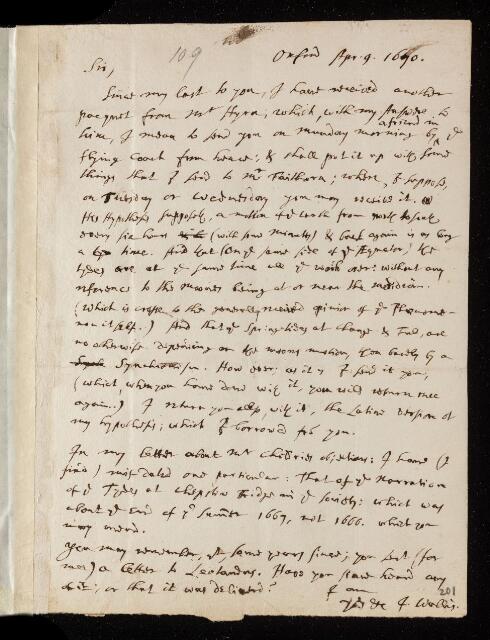 109
Oxford Apr. 9. 1670.
Sir,
Since my last to you, I have received another
pacquet from Mr Hyrn, which, with my Answere to
him, I mean to send you on munday morning by a friend in ye
flying Coach from hence; & shall put it up with some
things that I send to Mr Faithorn; where, I suppose,
on Tuesday or Wednesday you may receive it.
His Hypothesis supposeth, a motion of ye Earth from north to south
every six hours (with some minutes) & back again in as long
a time. And that (on ye same side of ye Aequator) the
tydes are at ye same time all ye world over: without any
reference to the moones being at or near the meridian.
(which is crosse to the generally received opinion of ye Phaenome-
non it self.) And that ye Spring-tides at change & Full, are
no otherwise depending on the moons motion, than barely by a
Synchronism. How ever, as it is I send it you;
(which, when you have done with it, you will return mee
again.) I return you allso, with it, the Latine version of
my hypothesis; which I borrowed fro you.
In my letter about Mr Childries objections: I have (I
find) misdated one particular: That of ye Narration
of ye Tydes at Chepstow Bridge in ye society: which was
about ye End of ye Summer 1667, not 1666. which you
may amend.
You may remember, yt some years since; you sent (for
mee) a letter to Leotaudus. Have you since heard any
of it; or that it was delivered?
I am
Yrs &c J. Wallis.
201